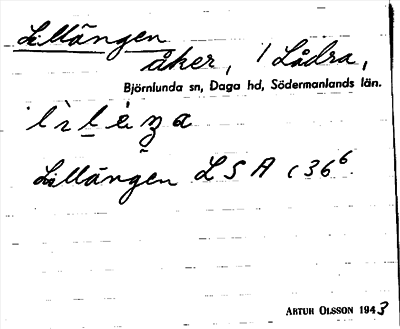 Lillängen
åker, / Lådra,
Björnlunda sn, Daga hd, Södermanlands län.
Lillängen LSA C36⁶
ARTUR OLSSON 1943